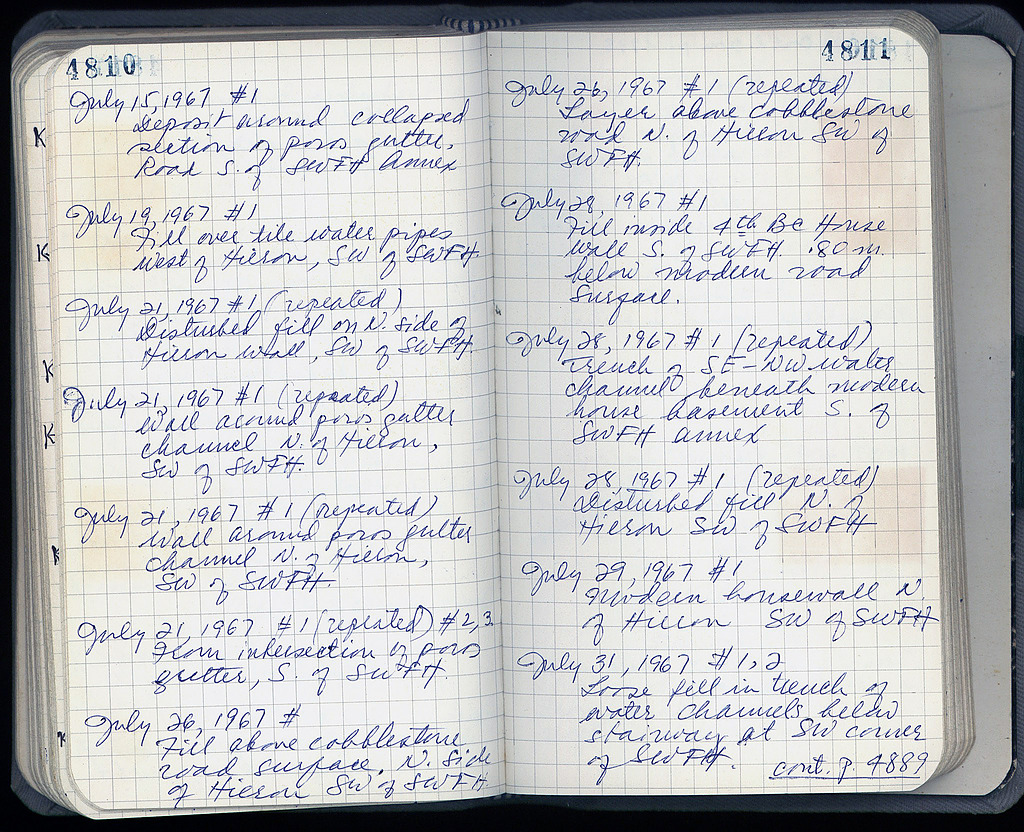 4810
July 15, 1967 #1
Deposit around collapsed
section of poros gutter,
Road S. of SWFH Annex
K
July 19, 1967 #1
Fill over tile water pipes
West of Hieron, SW of SWFH.
K
July 21, 1967 #1 (repeated)
Disturbed fill on N. side of
Hieron wall, SW of SWFH.
K
July 21, 1967 #1 (repeated)
Wall around poros gutter
channel N. of Hieron,
SW of SWFH.
K
July 21, 1967 #1 (repeated)
Wall around poros gutter
channel N. of Hieron,
SW of SWFH.
K
July 21, 1967 #1 (repeated) #2, 3.
From intersection of poros
gutter, S. of SWFH.
July 26, 1967 #
Fill above cobblestone
road surface, N. side
of Hieron SW of SWFH
K
4811
July 26, 1967 #1 (repeated)
Layer above cobblestone
road N. of Hieron SW of
SWFH.
July 28, 1967 #1
Fill inside 4th BC House
wall S. of SWFH. .80 m.
below modern road
surface.
July 28, 1967 #1 (repeated)
Trench of SE-NW water
channel beneath modern
house basement S. of
SWFH annex
July 28, 1967 #1 (repeated)
Disturbed fill N. of
Hieron SW of SWFH
July 29, 1967 #1
Modern housewall N.
of Hieron SW of SWFH
July 31, 1967 #1, 2
Loose fill in trench of
water channels below
stairway at SW corner
of SWFH.
cont. p. 4889